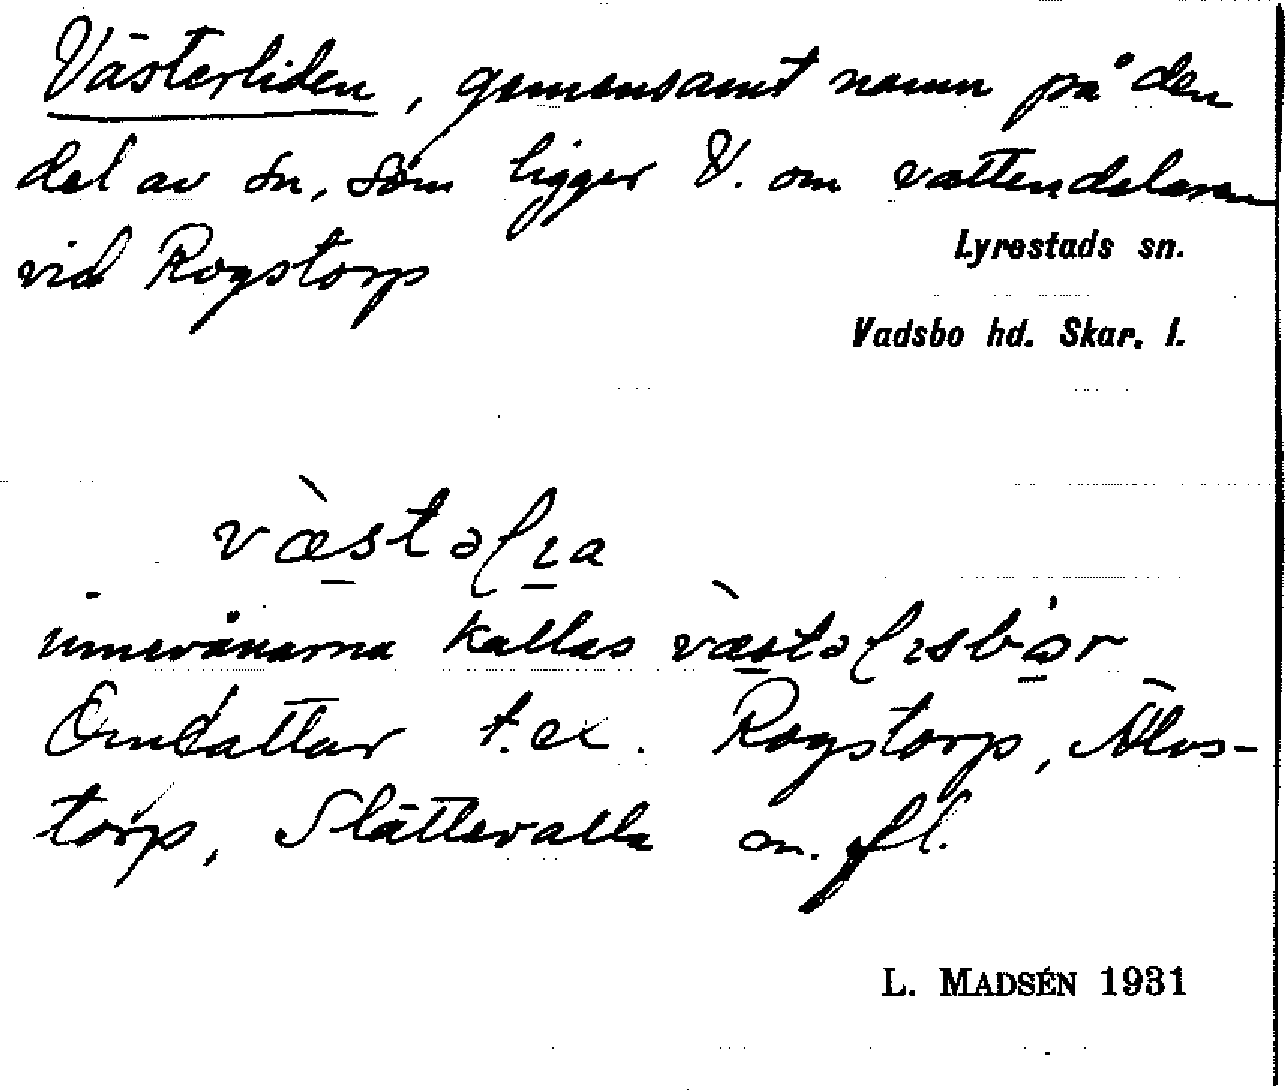 Västerliden, gemensamt namn på den
del av sn, som ligger V. om vattendelaren
vid Rogstorp
Lyrestads sn.
Vadsbo hd. Skar. l.
innevånarna kallas
Omfattar t.ex. Rogstorp, Älvs-
torp, Slättevalla m. fl.
L. MADSÉN 1931